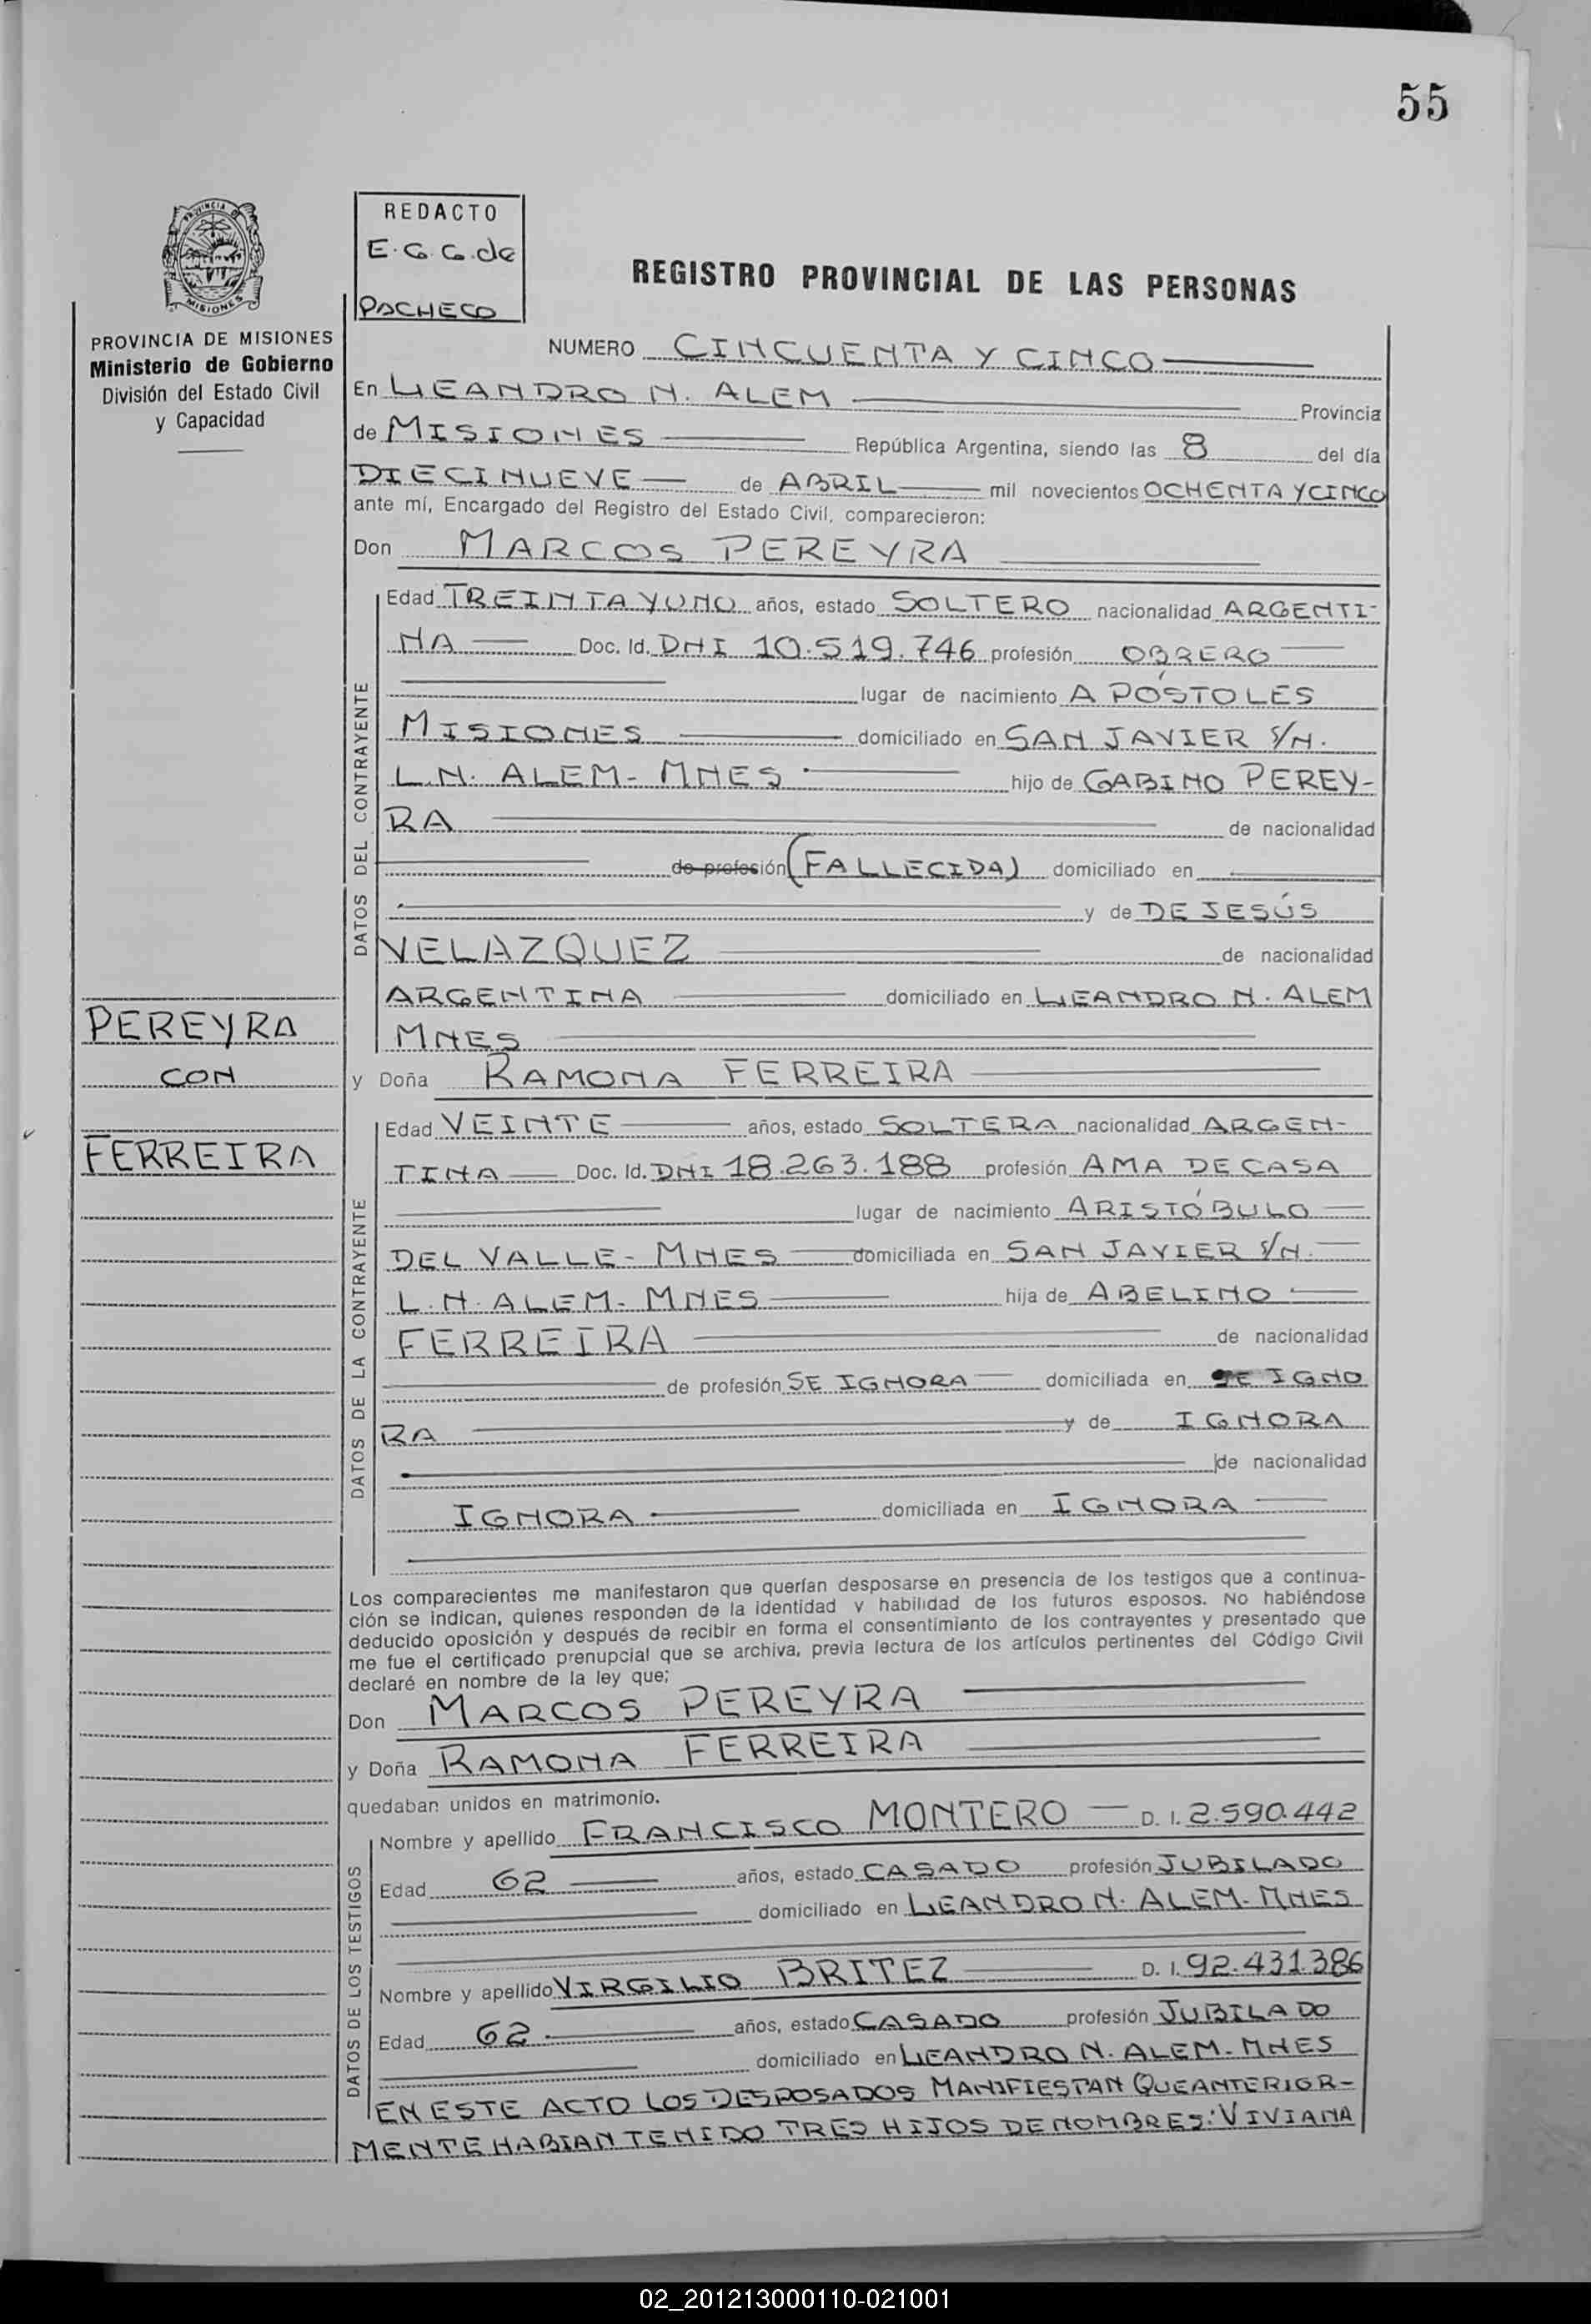 55
PROVINCIA DE
MISIONES
REDACTO
E.G.G.de
PACHECO
PROVINCIA DE MISIONES
Ministerio de Gobierno
División del Estado Civil
y Capacidad
REGISTRO PROVINCIAL DE LAS PERSONAS
NUMERO CINCUENTA Y CINCO
En LEANDRO N. ALEM Provincia
de MISIONES República Argentina, siendo las 8 del día
DIECINUEVE de ABRIL mil novecientos OCHENTA Y CINCO
ante mí, Encargado del Registro del Estado Civil, comparecieron:
Don MARCOS PEREYRA
DATOS DEL CONTRAYENTE
Edad TREINTA Y UNO años, estado SOLTERO nacionalidad ARGENTI-
NA Doc. Id. DNI 10.519.746 profesión OBRERO
lugar de nacimiento APÓSTOLES
MISIONES domiciliado en SAN JAVIER S/N.
L.N. ALEM- MNES hijo de GABINO PEREY-
RA de nacionalidad
de profesión (FALLECIDA) domiciliado en
y de DE JESÚS
VELAZQUEZ de nacionalidad
ARGENTINA domiciliado en LEANDRO N. ALEM
MNES
PEREYRA
CON
FERREIRA
y Doña RAMONA FERREIRA
DATOS DE LA CONTRAYENTE
Edad VEINTE años, estado SOLTERA nacionalidad ARGEN-
TINA Doc. Id. DNI 18.263.188 profesión AMA DE CASA
lugar de nacimiento ARISTÓBULO
DEL VALLE- MNES domiciliada en SAN JAVIER S/N.
L.N. ALEM- MNES hija de ABELINO
FERREIRA de nacionalidad
de profesión SE IGNORA domiciliada en SE IGNO
RA y de IGNORA
de nacionalidad
IGNORA domiciliada en IGNORA
Los comparecientes me manifestaron que querían desposarse en presencia de los testigos que a continua-
ción se indican, quienes responden de la identidad y habilidad de los futuros esposos. No habiéndose
deducido oposición y después de recibir en forma el consentimiento de los contrayentes y presentado que
me fue el certificado prenupcial que se archiva, previa lectura de los artículos pertinentes del Código Civil
declaré en nombre de la ley que;
Don MARCOS PEREYRA
y Doña RAMONA FERREIRA
quedaban unidos en matrimonio.
DATOS DE LOS TESTIGOS
Nombre y apellido FRANCISCO MONTERO D. I. 2.590.442
Edad 62 años, estado CASADO profesión JUBILADO
domiciliado en LEANDRO N. ALEM- MNES
Nombre y apellido VIRGILIO BRITEZ D. I. 92.431.386
Edad 62 años, estado CASADO profesión JUBILADO
domiciliado en LEANDRO N. ALEM- MNES
EN ESTE ACTO LOS DESPOSADOS MANIFIESTAN QUE ANTERIOR-
MENTE HABIAN TENIDO TRES HIJOS DE NOMBRES: VIVIANA
02_201213000110-021001